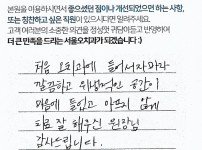 본원을 이용하시면서 좋으셨던 점이나 개선되었으면 하는 사항,
또는 칭찬하고 싶은 직원이 있으시다면 알려주세요.
고객 여러분의 소중한 의견을 정성껏 귀담아듣고 반영하여
더 큰 만족을 드리는 서울오치과가 되겠습니다 :)
처음 오치과에 들어서자마자
깔끔하고 위생적인 공간이
마음에 들었고 아프지 않게
치료 잘 해주신 원장님
감사드립니다.